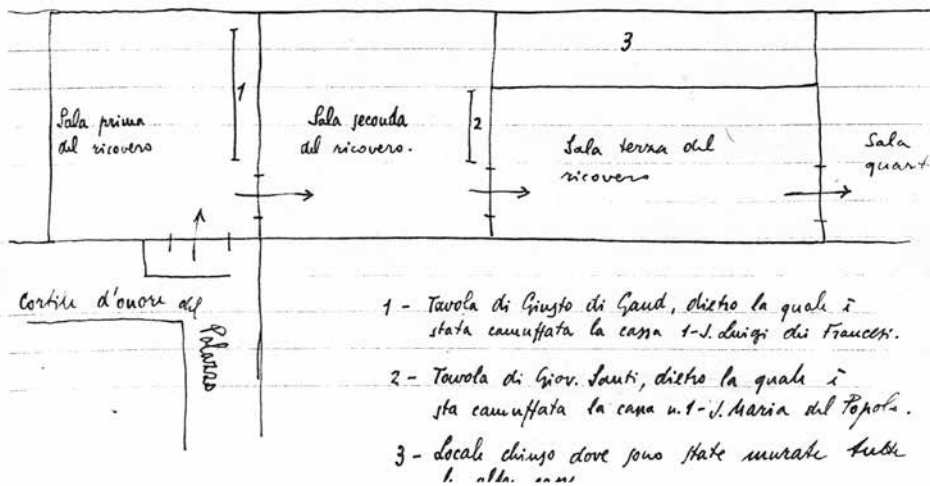 3
1
Sala prima
del ricovero
Sala seconda
del ricovero.
2
Sala terza del
ricovero
Sala
quart
Cortile d'onore del
Palazzo
1 - Tavola di Giusto di Gand, dietro la quale è
stata camuffata la cassa 1-S. Luigi dei Francesi.
2 - Tavola di Giov. Santi, dietro la quale è
sta camuffata la cassa n. 1 - S. Maria del Popolo.
3 - Locale chiuso dove sono state murate tutte